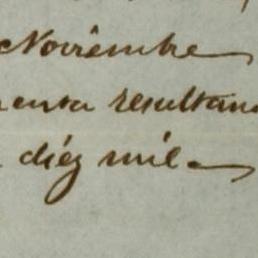 Noviembre
cuenta resultan
diéz mil